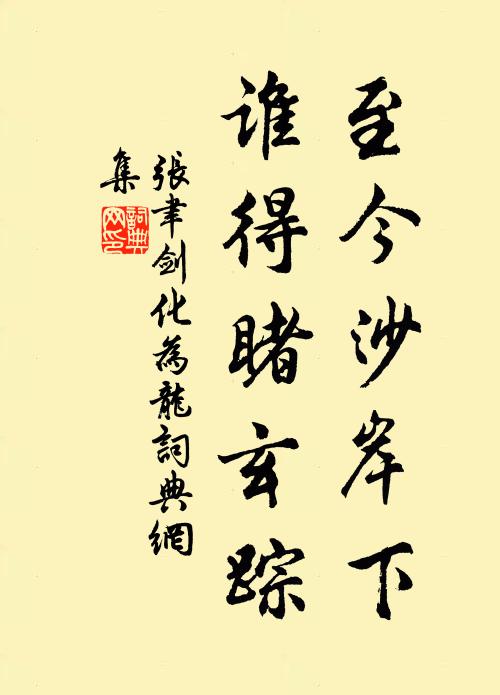 至今沙岸下
谁得睹玄踪
張聿劍化為龍詞典網
集
詞典網印